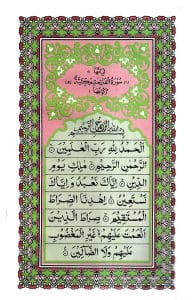 بسم الله الرحمن الرحيم
الحمد لله رب العلمين
الرحمن الرحيم ملك يوم
الدين اياك نعبد و اياك
نستعين اهدنا الصراط
المستقيم صراط الذين
انعمت عليهم غير المغضوب
عليهم ولا الضالين